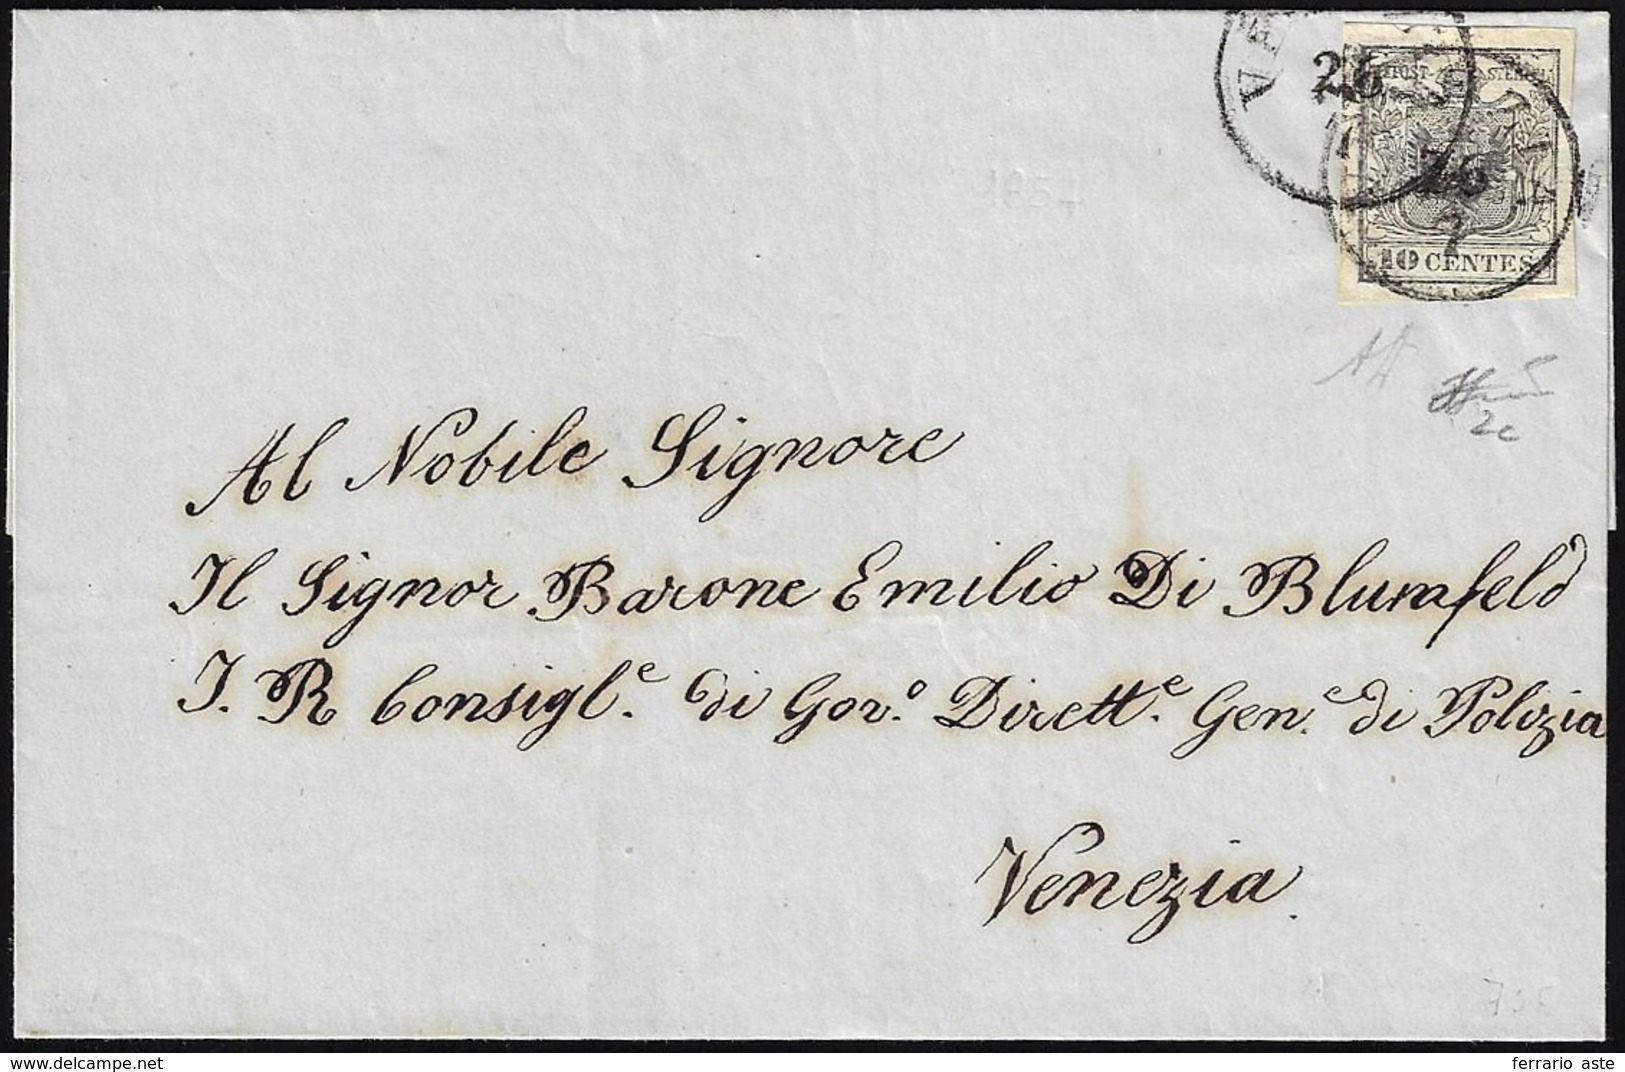 26
26
7
10 CENTES
1857
2c
Al Nobile Signore
Il Signor Barone Emilio Di Blumfeld
I. R Consigl.e di Gov.o Dirett.e Gen.e di Polizia
Venezia.
www.delcampe.net
ferrario aste